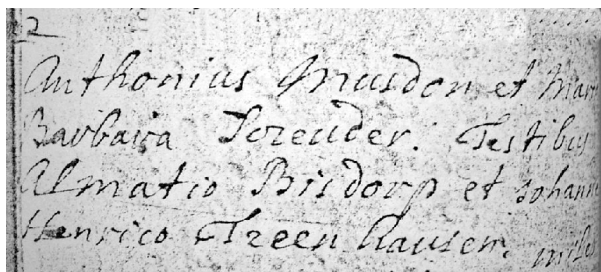 2
Anthonius Musdon et Mar
Barbara Screuder. Testibus
Almatio Bisdorp et Johann
Henrico Treen